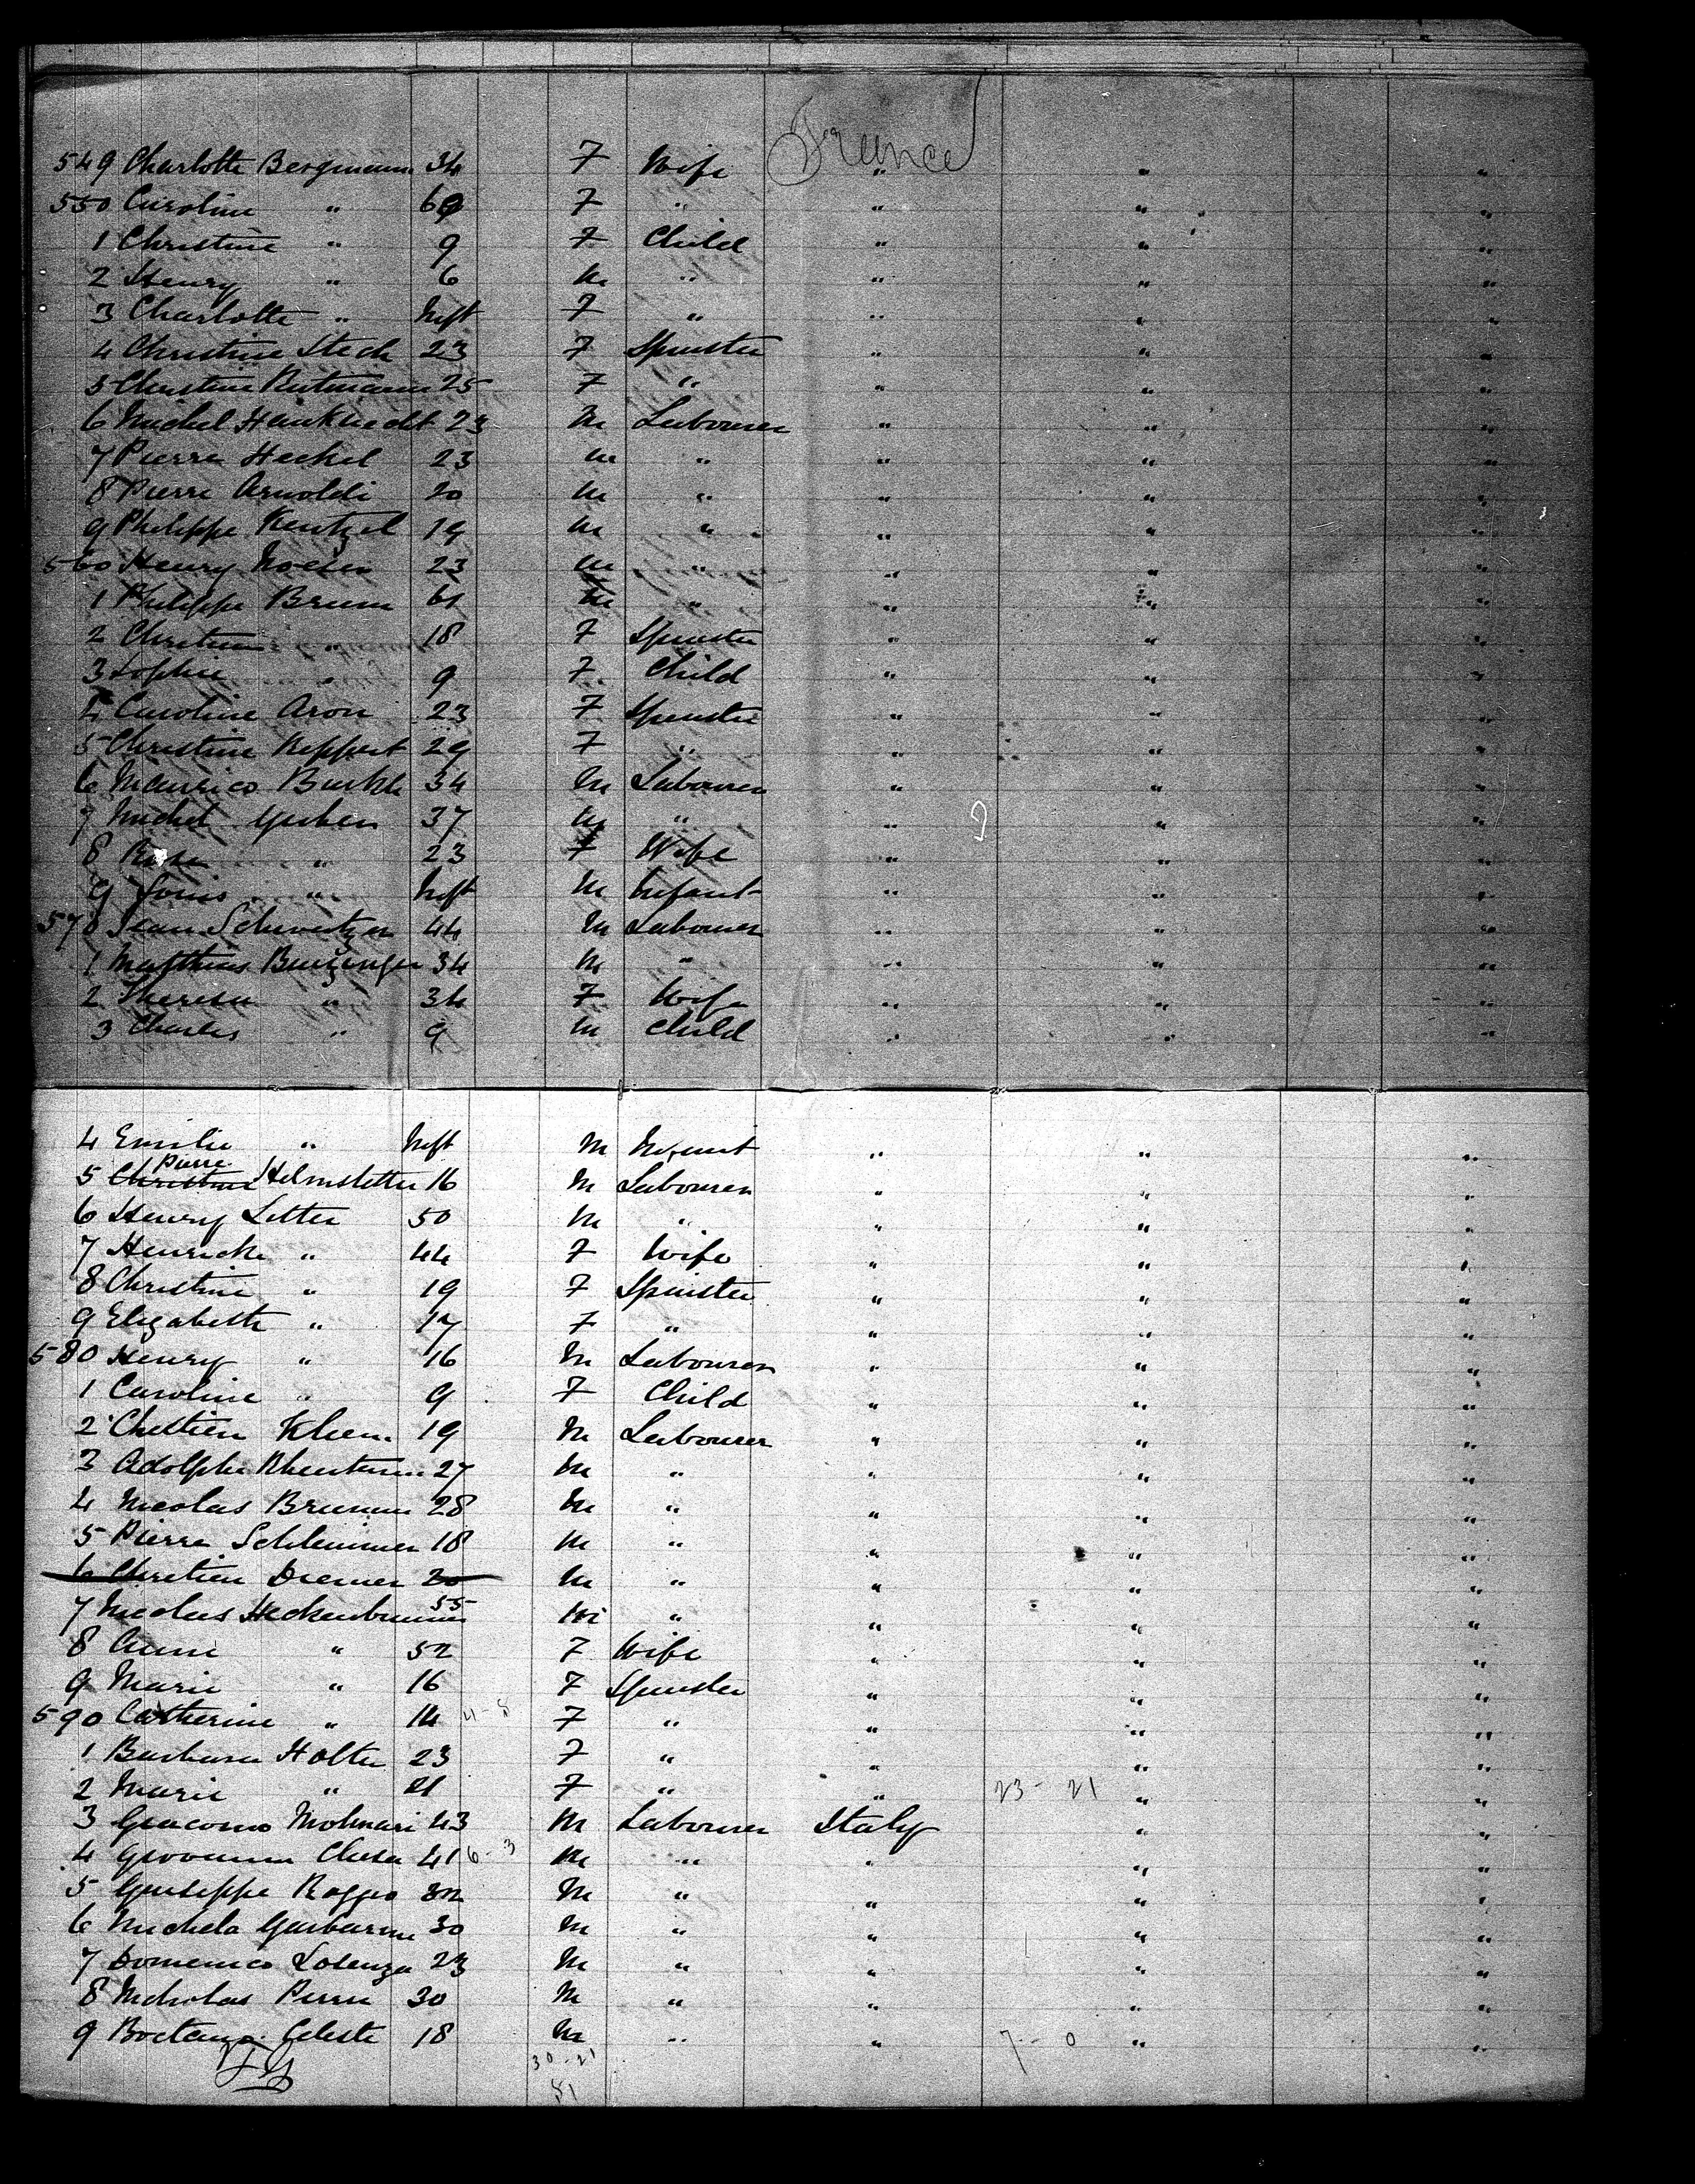 France
549 Charlotte Bergmann 34 F Wife " " "
550 Caroline " 60 F " " " "
1 Christine " 9 F Child " " "
2 Henry " 6 m " " " "
3 Charlotte " Inft F " " " "
4 Christine Stech 23 F Spinster " " "
5 Christine 25 F " " " "
6 Michel Haukhecht 23 m Labourer " " "
7 Pierre Heckel 23 m " " " "
8 Pierre Arnoldi 20 m " " " "
9 Philippe Kentzel 19 m " " " "
560 Henry 23 m " " " "
1 Philippe Brum 61 m " " " "
2 " 18 F Spinster " " "
3 Sophie " 9 F Child " " "
4 Caroline Aron 23 F Spinster " " "
5 Christine Reppert 29 F " " " "
6 Maurico Burkle 34 m Labourer " " "
7 Michel 37 m " " " "
8 Rosa " 23 F Wife " " "
9 Louis " Inft m Infant " " "
570 Jean Schweitzer 44 m Labourer " " "
1 Matthias 34 m " " " "
2 Theresa " 34 F Wife " " "
3 Charles " 9 m Child " " "
4 Emilie " Inft m Infant " " "
Pierre
5 Christine Helmstetter 16 m Labourer " " "
6 Henry Letter 50 m " " " "
7 Henricke " 44 F Wife " " "
8 Christine " 19 F Spinster " " "
9 Elizabeth " 17 F " " " "
580 Henry " 16 m Labourer " " "
1 Caroline " 9 F Child " " "
2 Chettien Klein 19 m Labourer " " "
3 Adolphe 27 m " " " "
4 Nicolas Brumm 28 m " " " "
5 Pierre Schleimmer 18 m " " " "
6 Chretien Diemer 20 m " " " "
7 Nicolas Heckenbrumer 55 m " " " "
8 Anne " 52 F Wife " " "
9 Marie " 16 F Spinster " " "
590 Catherine " 14 4-8 F " " " "
1 Barbara Holter 23 F " " " "
2 Marie " 21 F " " 23 - 21 " "
3 Giacomo Molinari 43 m Labourer Italy " "
4 Giovanna Chesa 41 6-3 m " " " "
5 Giuseppe Roggio 32 m " " " "
6 Michela Garbarine 30 m " " " "
7 Domenico Lorenzo 23 m " " " "
8 Nicholas Perru 30 m " " " "
9 Celeste 18 m " " 7 - 0 " "
30-21
51